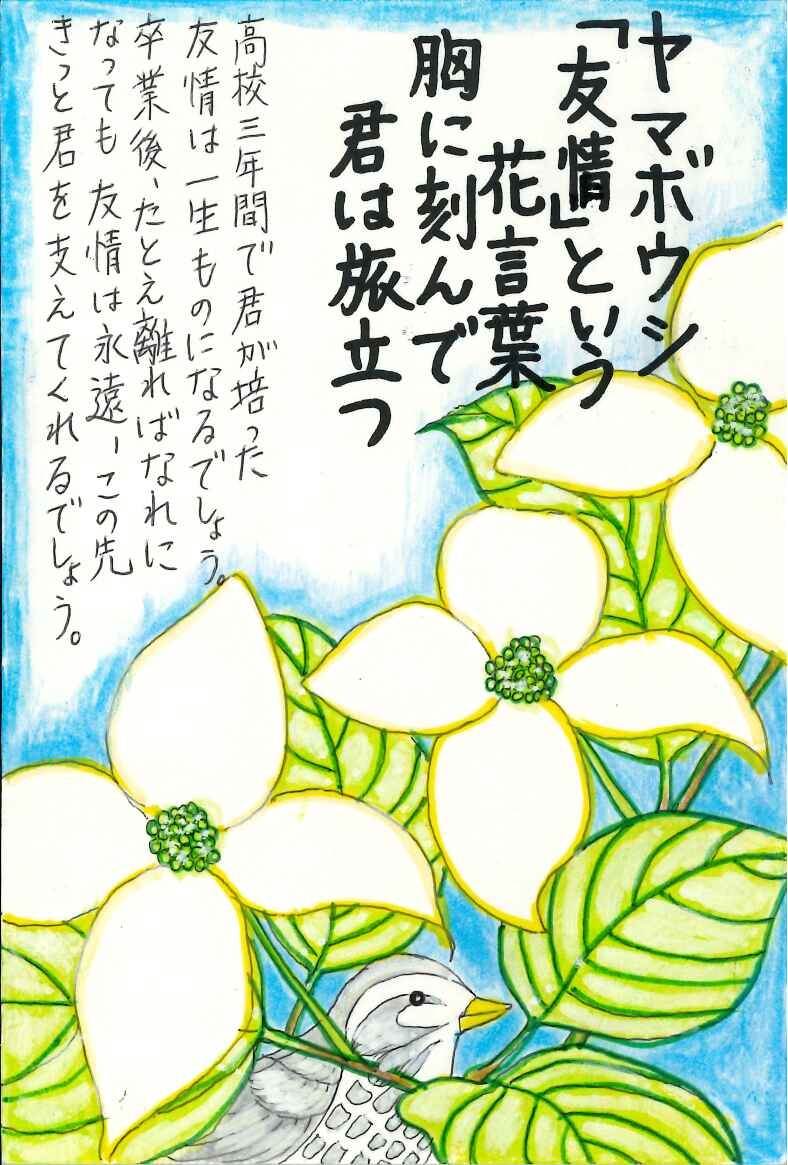 ヤマボウシ
「友情」という
花言葉
胸に刻んで
君は旅立つ
高校三年間で君が培った
友情は一生ものになるでしょう。
卒業後、たとえ離ればなれに
なっても友情は永遠ーこの先
きっと君を支えてくれるでしょう。